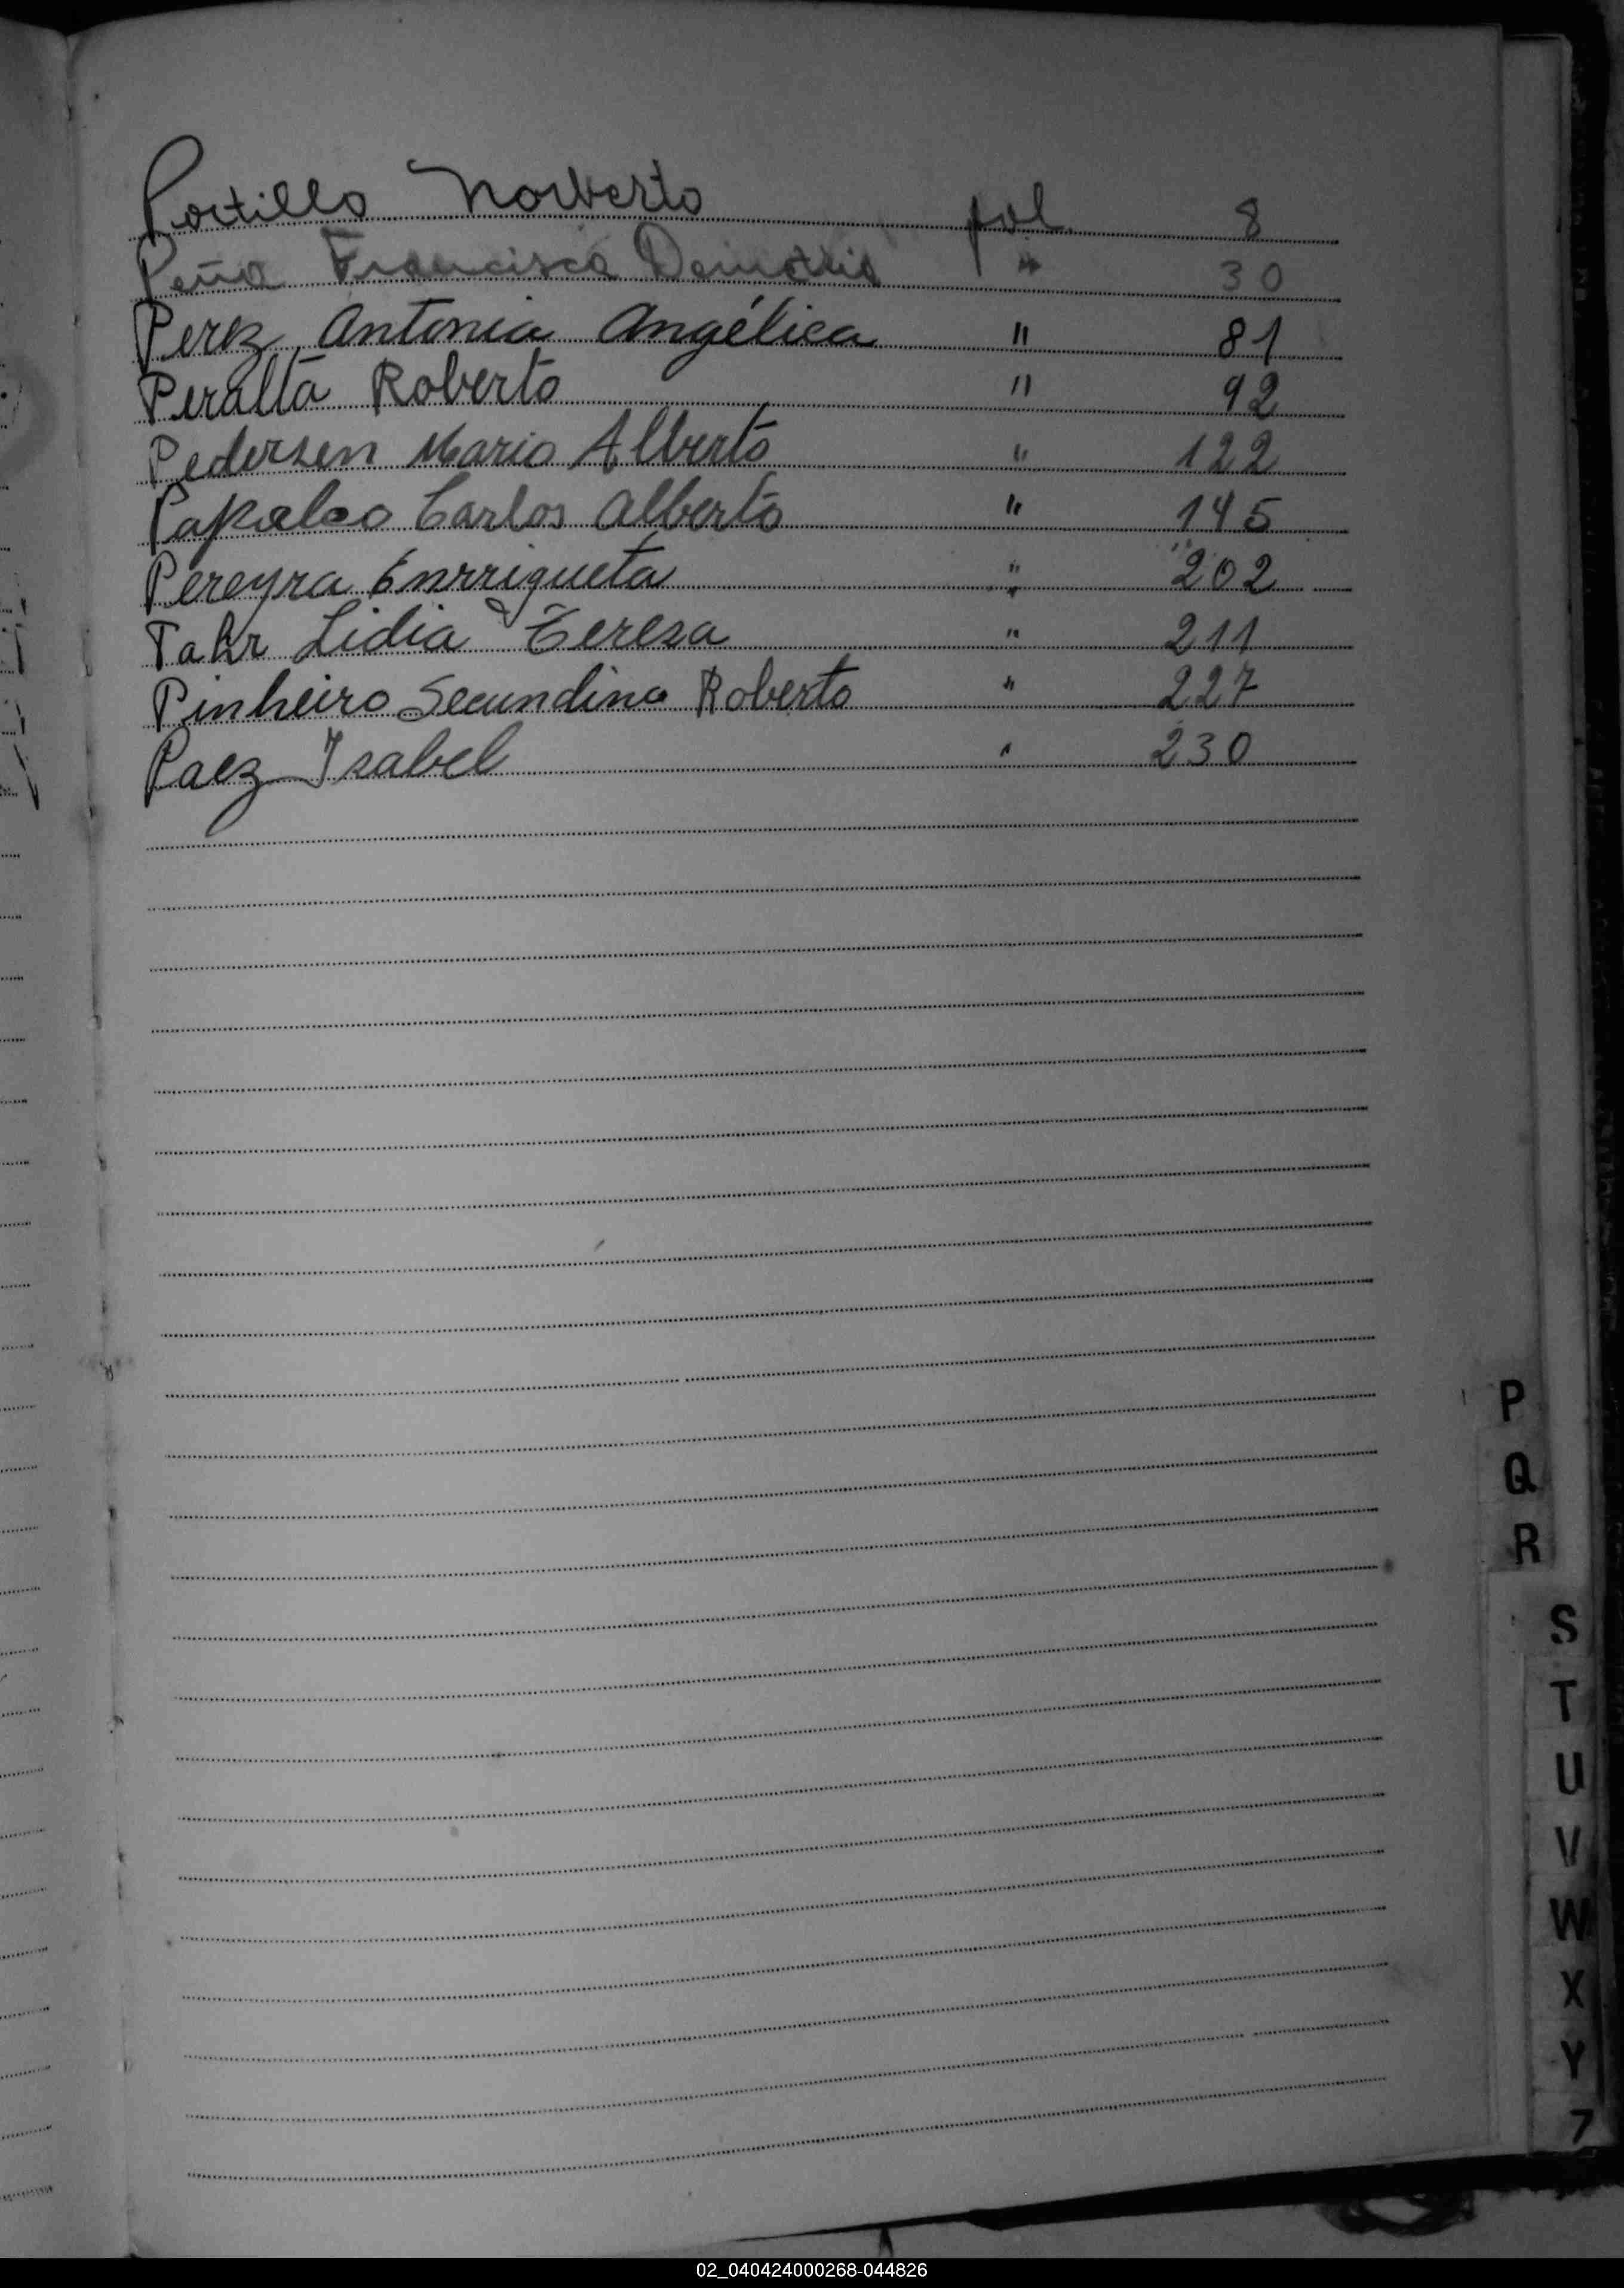 Portillo Norberto fol. 8
Peña Francisco Demetrio " 30
Perez Antonia Angélica " 81
Peralta Roberto " 92
Pedersen Mario Alberto " 122
Carlos Alberto " 145
Pereyra Enrriqueta " 202
Tahr Lidia Tereza " 211
Pinheiro Secundino Roberto " 227
Paez Isabel " 230
P
Q
R
S
T
U
V
W
X
Y
Z
02_040424000268-044826